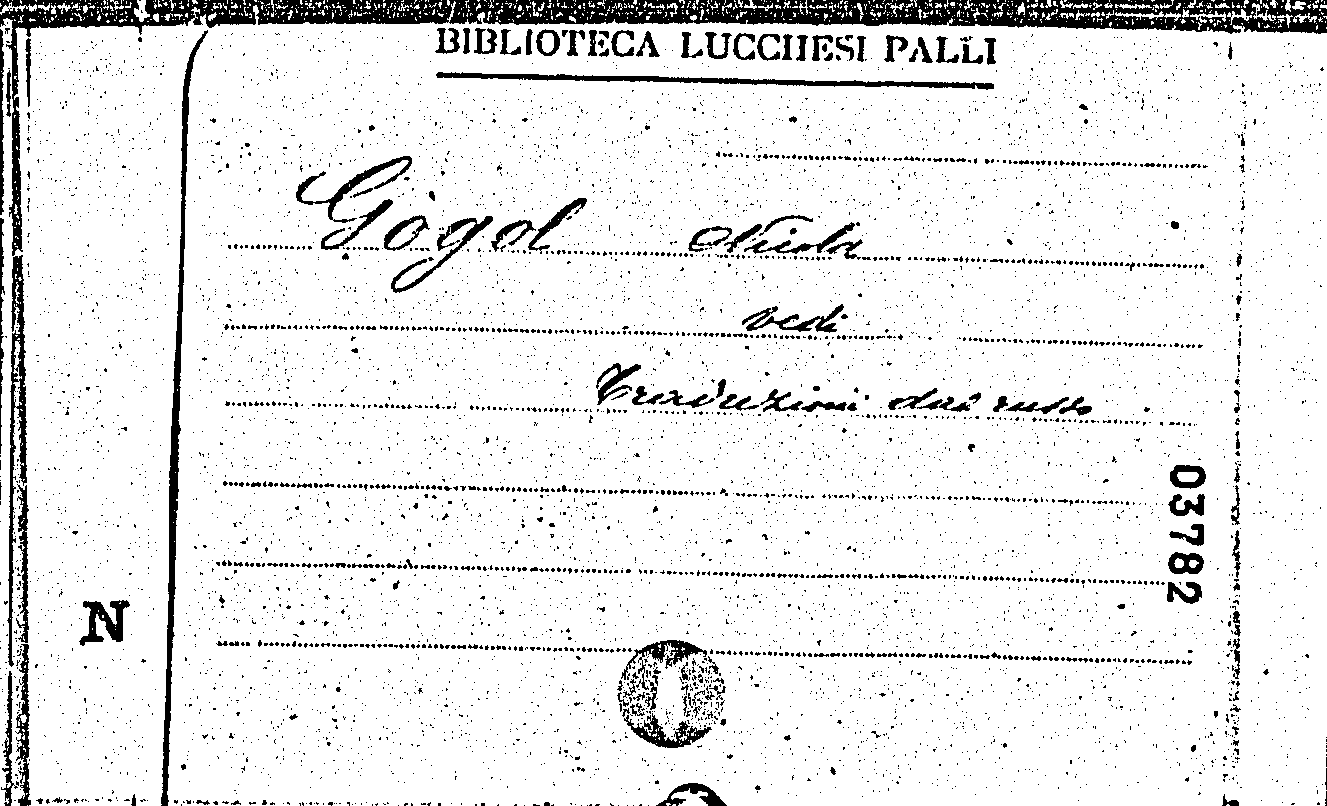 BIBLIOTECA LUCCHESI PALLI
Gògol Nicola
vedi
Traduzioni dal russo
03782
N